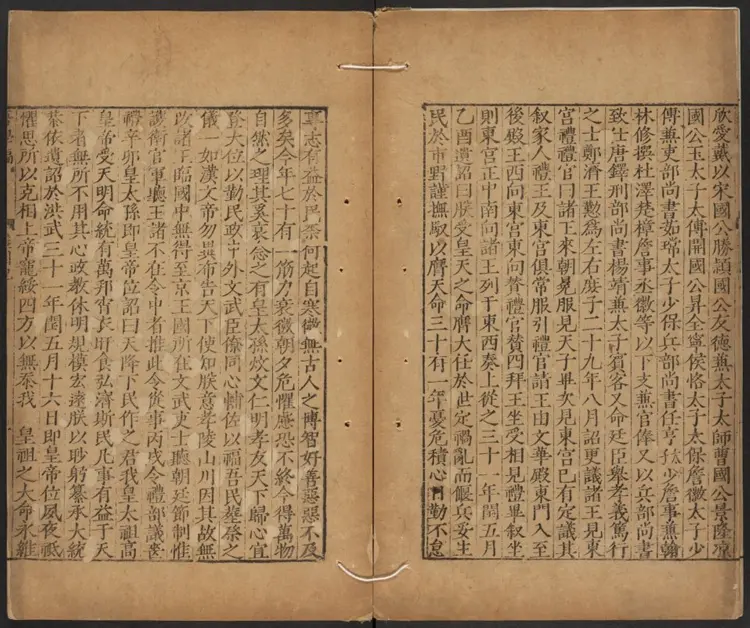 欣愛戴以宋國公勝潁國公友德兼太子太師曹國公景隆涼
國公玉太子太傅開國公昇全寧侯恪太子太保詹徽太子少
傅兼吏部尚書茹瑺太子少保兵部尚書任亨泰少詹事兼翰
林修撰杜澤楚樟詹事丞徽等以下支兼官俸又以兵部尚書
致仕唐鐸刑部尚書楊靖兼太子賓客又命廷臣舉孝義篤行
之士鄭濟王懃為左右庶子二十九年八月詔更議諸王見東
宮禮禮官曰諸王來朝冕服見天子畢次見東宮已有定議其
叙家人禮王及東宮俱常服引禮官請王由文華殿東門入至
後殿王西向東宮東向贊禮官贊四拜王坐受相見禮畢叙坐
則東宮正中南向諸王列于東西奏上從之三十一年閏五月
乙酉遺詔曰朕受皇天之命膺大任於世定禍亂而偃兵妥生
民於市野謹撫馭以膺天命三十有一年憂危積心日勤不怠
專志有益於民柰何起自寒微無古人之博智好善惡惡不及
多矣今年七十有一筋力衰微朝夕危懼慮恐不終今得萬物
自然之理其奚哀念之有皇太孫炆文仁明孝友天下歸心宜
登大位以勤民政中外文武臣僚同心輔佐以福吾民塟祭之
儀一如漢文帝勿異布告天下使知朕意孝陵山川因其故無
改諸王臨國中無得至京王國所在文武吏士聽朝廷節制惟
護衛官軍聽王諸不在令中者推此令從事丙戌令禮部議喪
禮辛卯皇太孫即皇帝位詔曰天降下民作之君我皇太祖高
皇帝受天明命統有萬邦宵衣旰食弘濟斯民凡事有益于天
下者無所不用其心政教休明規模宏遠朕以眇躬纂承大統
恭依遺詔於洪武三十一年閏五月十六日即皇帝位夙夜祗
懼思所以克相上帝寵綏四方以無忝我 皇祖之大命永維